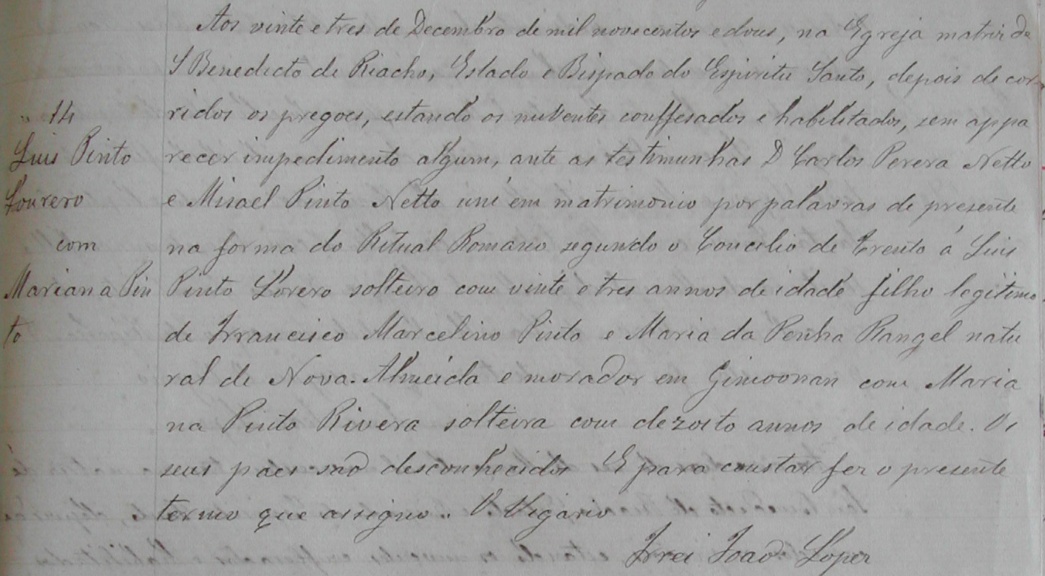 Aos vinte e tres de Decembro de mil novecentos e dous, na Egreja matriz de
S Benedicto de Riacho, Estado e Bispado do Espiritu Santo, depois de cor
ridos os pregoes, estando os nuventes conffesados e habilitados, sem appa
recer impedimento algum, ante as testimunhas D Carlos Perera Netto
e Misael Pinto Netto uni em matrimonio por palavras de presente
na forma do Ritual Romano segundo o Concilio de Trento á Luis
Pinto Lorero solteiro com vinte e tres annos de idade filho legitimo
de Francisco Marcelino Pinto e Maria da Penha Rangel natu
ral de Nova-Almeida e morador em Gimoonan com Maria
na Pinto Rivera solteira com dezoito annos de idade. Os
seus paes são desconhecidos E para constar fez o presente
termo que assigno. O Vigario
Frei Joaõ Lopez
14
Luis Pinto
Lourero
com
Mariana Pin
to